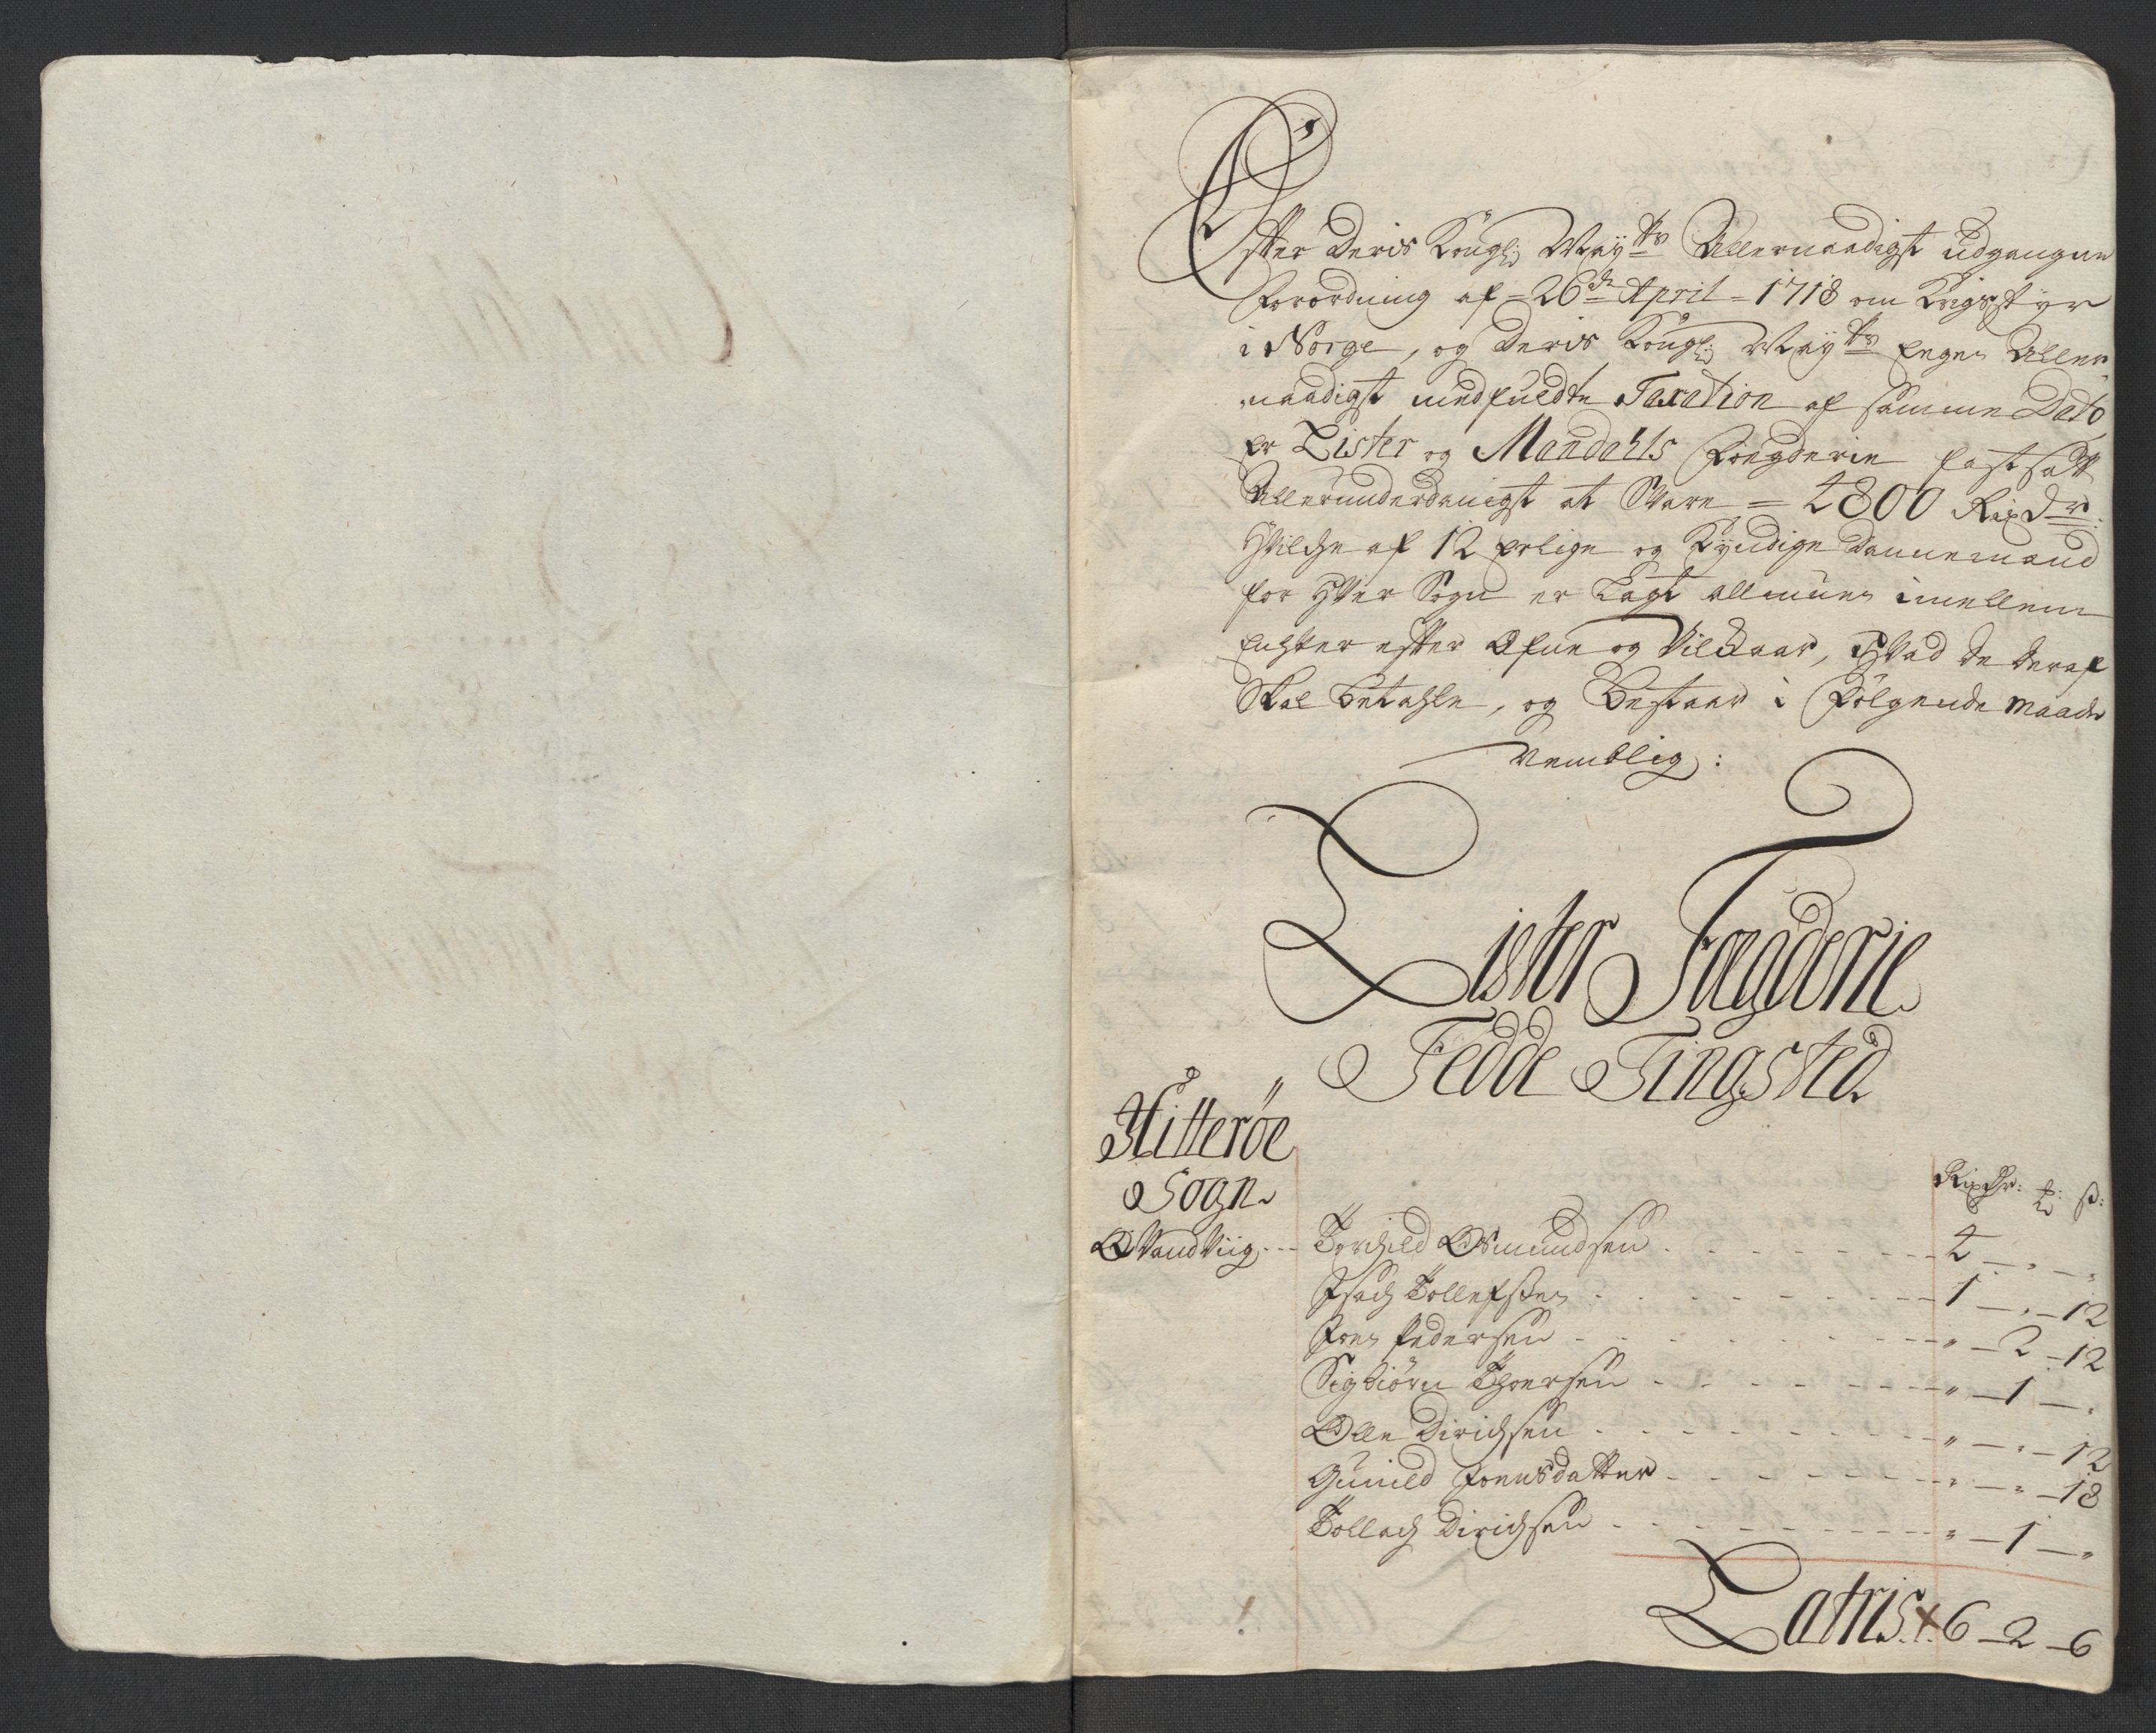 Efter Deris Kongl: May:ts Allernaadigst udgangne
Forordning af =26de April=1718 om Krigsstyr
i Norge, og Deris Kongl: May:ts Egen Aller
naadigst medfuldte Taxation af samme Dato
Er Lister og Mandahls Fougderie fastsatt
Allerunderdanigst at Svare = 4800 Rixdr:
Hvilche af 12 Erlige og Kyndige Dannemænd
for Hver Sogn er Lagt Allmuen imellem
Enhver efter Efne og Vilckaar, Hvad de deraf
Skal betahle, og Bestaar i Følgende Maade
Nemblig:
Lister Fogderie
Fedde Tingsted
Hitterøe
Sogn
Rixdr: # s:
QvandViig --- Torchild Osmundsen - - - 4 - " - "
Isach Tollefsen - - - 1 - " - 12
Joen Pedersen - - - " - 2 - 12
Sigbiørn Thorsen - - - " - 1 - "
Olle Dirichsen - - - " - " - 12
Gunild Joensdatter - - - " - " - 18
Tollach Dirichsen - - - " - 1 - "
Latris + 6 - 2 - 6